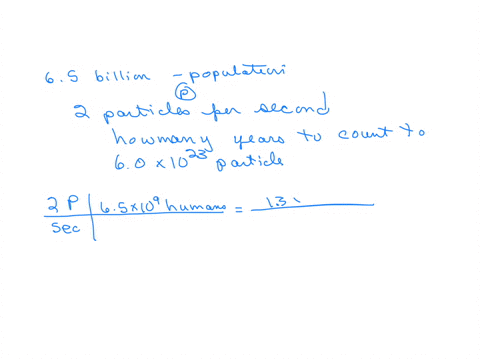 6.5 billion - population
P
2 particles per second
how many years to count to
6.0 x 10^23 particle
2 P | 6.5 x 10^9 humans = 1.3
sec |